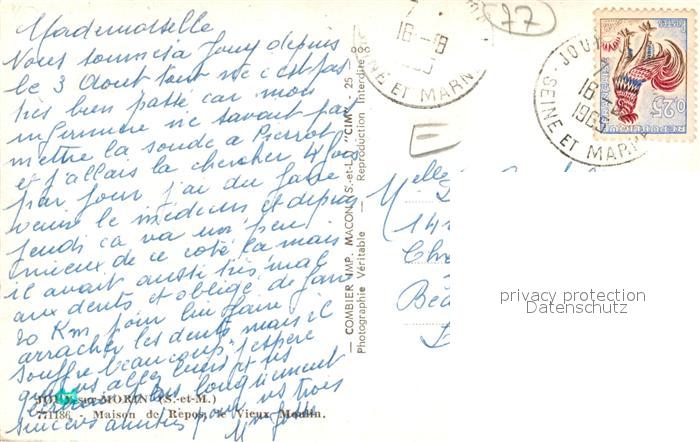 Mademoiselle
Nous sommes a Jouy depuis
le 3 Aout tout ne c'est pas
très bien passé car mon
infirmiere ne savait pas
mettre la sonde a Pierrot
et j'allais la chercher 4 fois
par jour j'ai du faire
venir le médecin et depuis
jeudi ca va un peu
mieux de ce coté la mais
il avait aussi très mal
aux dents et obligé de faire
20 Km pour lui faire
arracher les dents mais il
souffre beaucoup j'espère
que vous allez bien
longuement
sincères amitiés pour vous trois
JOUY-sur-MORIN (S.-et-M.)
771186 - Maison de Repos, le Vieux Moulin.
— COMBIER IMP. MACON (S.-et-L.) "CIM" — 25
Photographie Véritable — Reproduction Interdite
77
18-8
SEINE ET MARN
E
JOU
18-8
SEINE ET MARN
0,25
Melle
(141
Chr
Béa
privacy protection
Datenschutz